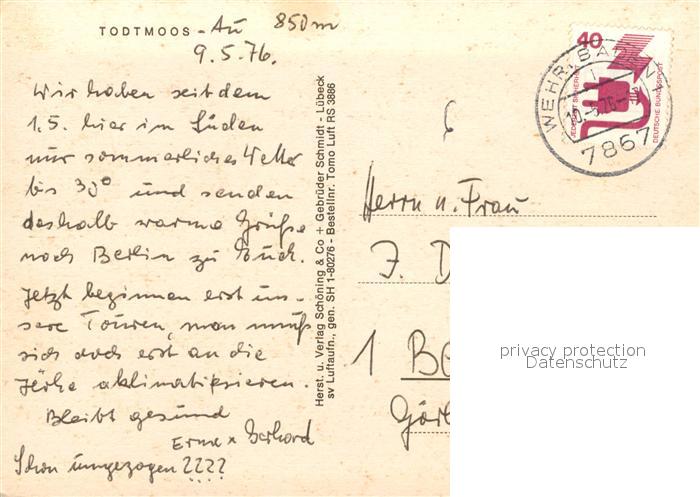 TODTMOOS - Au 850m
9.5.76.
Wir haben seit dem
1.5. hier im Süden
nur sommerliches Wetter
bis 30° und senden
deshalb warme Grüße
nach Berlin zu Euch.
Jetzt beginnen erst un-
sere Touren, man muß
sich doch erst an die
Höhe aklimatisieren.
Bleibt gesund
Erna + Gerhard
Schon umgezogen ????
Herst. u. Verlag Schöning & Co + Gebrüder Schmidt - Lübeck
sv Luftaufn., gen. SH 1-80276 - Bestellnr. Tomo Luft RS 3886
40
JEDERZEIT SICHERHEIT
DEUTSCHE BUNDESPOST
WEHR, BADEN 1
10.-5.76.-
7867
6
Herrn u. Frau
J. D
1 Be
Görl
privacy protection
Datenschutz